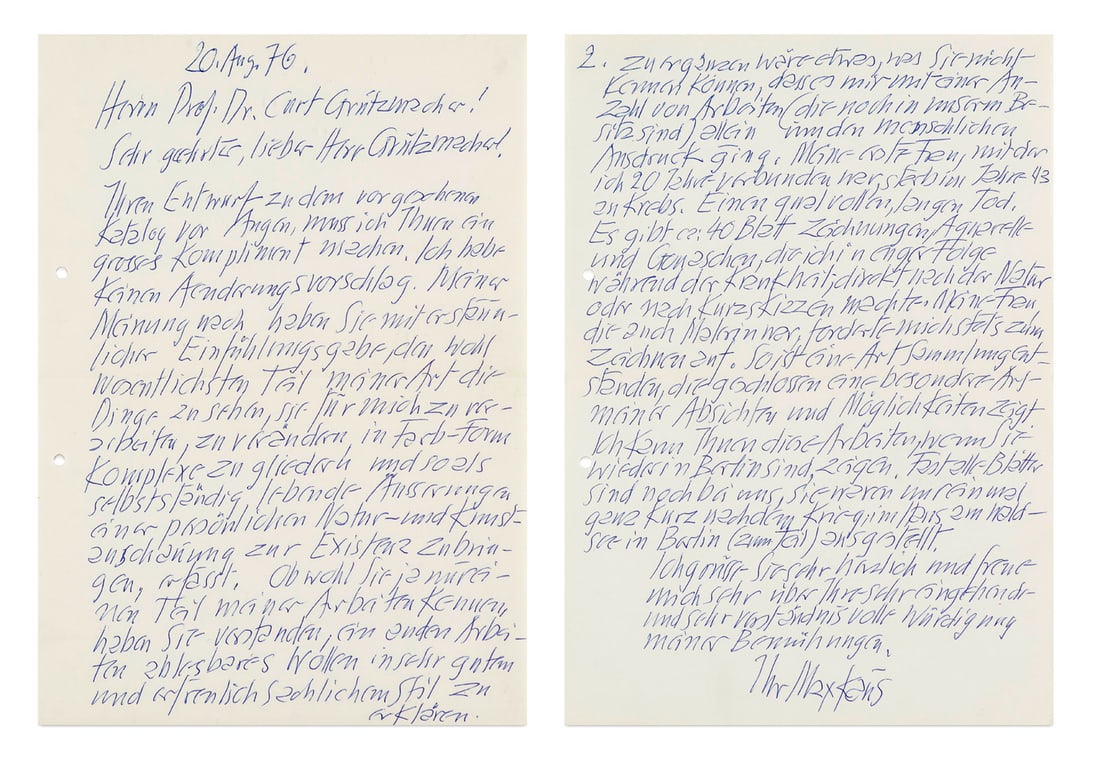 20. Aug. 76.
Herrn Prof. Dr. Curt Grützmacher!
Sehr geehrter, lieber Herr Grützmacher!
Ihren Entwurf zu dem vorgesehenen
Katalog vor Augen, muss ich Ihnen ein
grosses Kompliment machen. Ich habe
keinen Aenderungsvorschlag. Meiner
Meinung nach haben Sie mit erstaun-
licher Einfühlungsgabe, den wohl
wesentlichsten Teil meiner Art die
Dinge zu sehen, sie für mich zu ver-
arbeiten, zu verändern, in Farb-Form
Komplexe zu gliedern und so als
selbstständig lebende Äusserungen
einer persönlichen Natur- und Kunst-
anschauung zur Existenz zu brin-
gen, erfasst. Obwohl Sie ja nur ei-
nen Teil meiner Arbeiten kennen,
haben Sie verstanden, ein an den Arbei-
ten ablesbares Wollen in sehr gutem
und erfreulich sachlichem Stil zu
erklären.
2. Zu ergänzen wäre etwas, was Sie nicht
kennen können, dass es mir mit einer An-
zahl von Arbeiten (die noch in unserm Be-
sitz sind) allein um den menschlichen
Ausdruck ging. Meine erste Frau, mit der
ich 20 Jahre verbunden war, starb im Jahre 43
an Krebs. Einen qualvollen, langen Tod.
Es gibt ca: 40 Blatt Zeichnungen, Aquarelle
und Gouaschen, die ich in enger Folge
während der Krankheit, direkt nach der Natur
oder nach Kurzskizzen machte. Meine Frau
die auch Malerin war, forderte mich stets zum
Zeichnen auf. So ist eine Art Sammlung ent-
standen, die geschlossen eine besondere Art
meiner Absichten und Möglichkeiten zeigt.
Ich kann Ihnen diese Arbeiten, wenn Sie
wieder in Berlin sind, zeigen. Fast alle Blätter
sind noch bei uns, sie waren nur einmal
ganz kurz nach dem Krieg im Haus am Wald-
see in Berlin (zum Teil) ausgestellt.
Ich grüsse Sie sehr herzlich und freue
mich sehr über Ihre sehr eingehende
und sehr verständnisvolle Würdigung
meiner Bemühungen.
Ihr Max Kaus